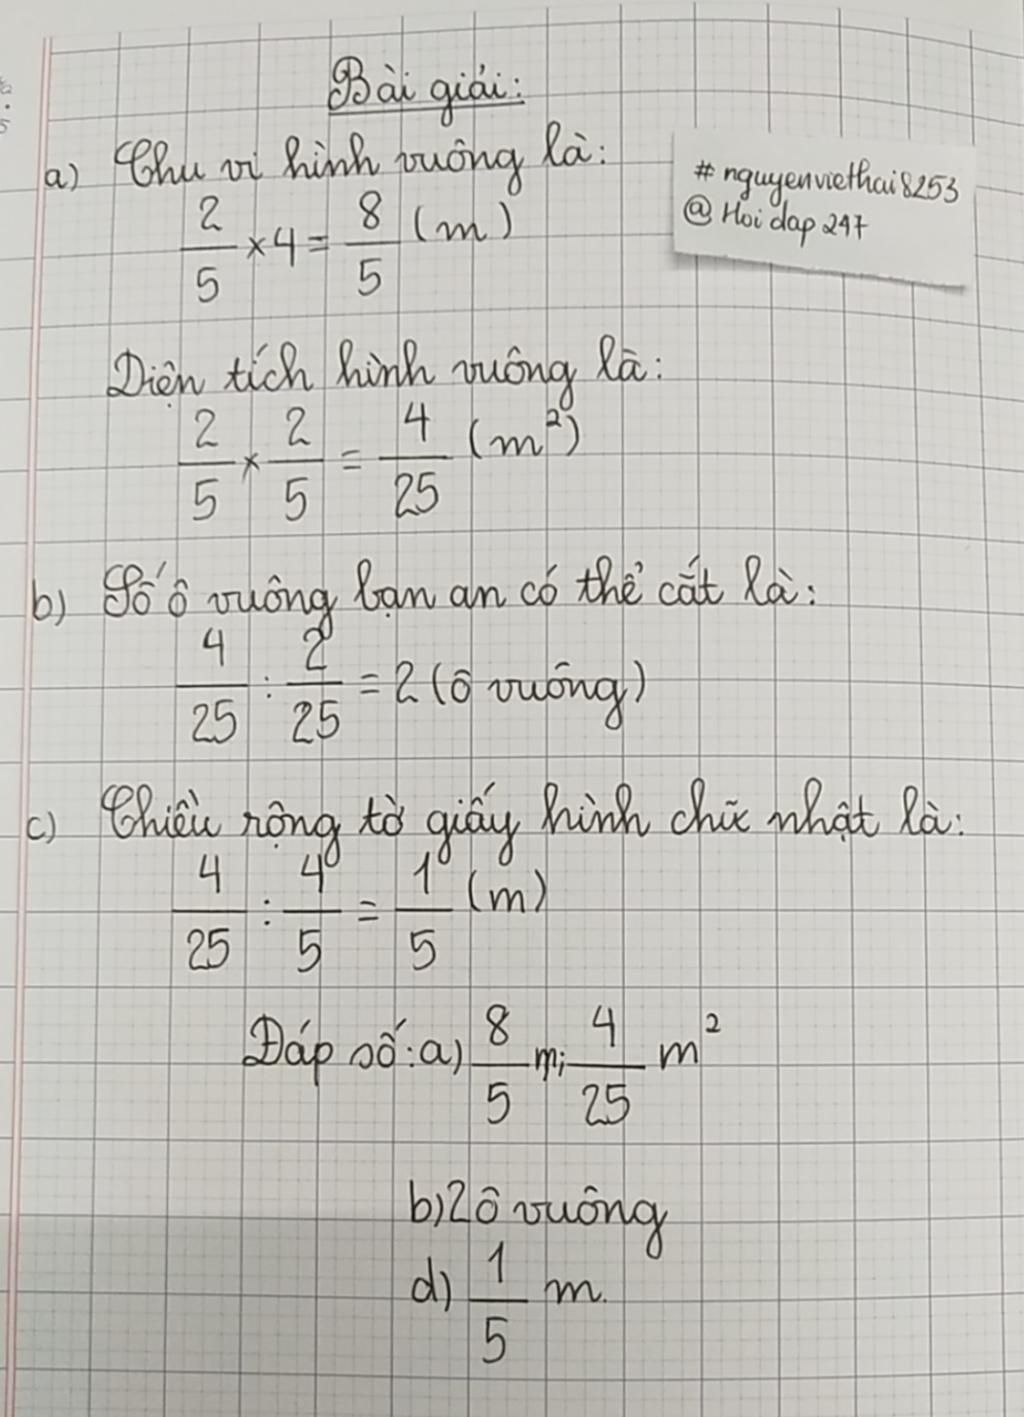 Bài giải:
a) Chu vi hình vuông là:
2/5 × 4 = 8/5 (m)
#nguyenviethai8253
@Hoidap247
Diện tích hình vuông là:
2/5 × 2/5 = 4/25 (m²)
b) Số ô vuông bạn an có thể cắt là:
4/25 : 2/25 = 2 (ô vuông)
c) Chiều rộng tờ giấy hình chữ nhật là:
4/25 : 4/5 = 1/5 (m)
Đáp số: a) 8/5 m; 4/25 m²
b) 2 ô vuông
d) 1/5 m.